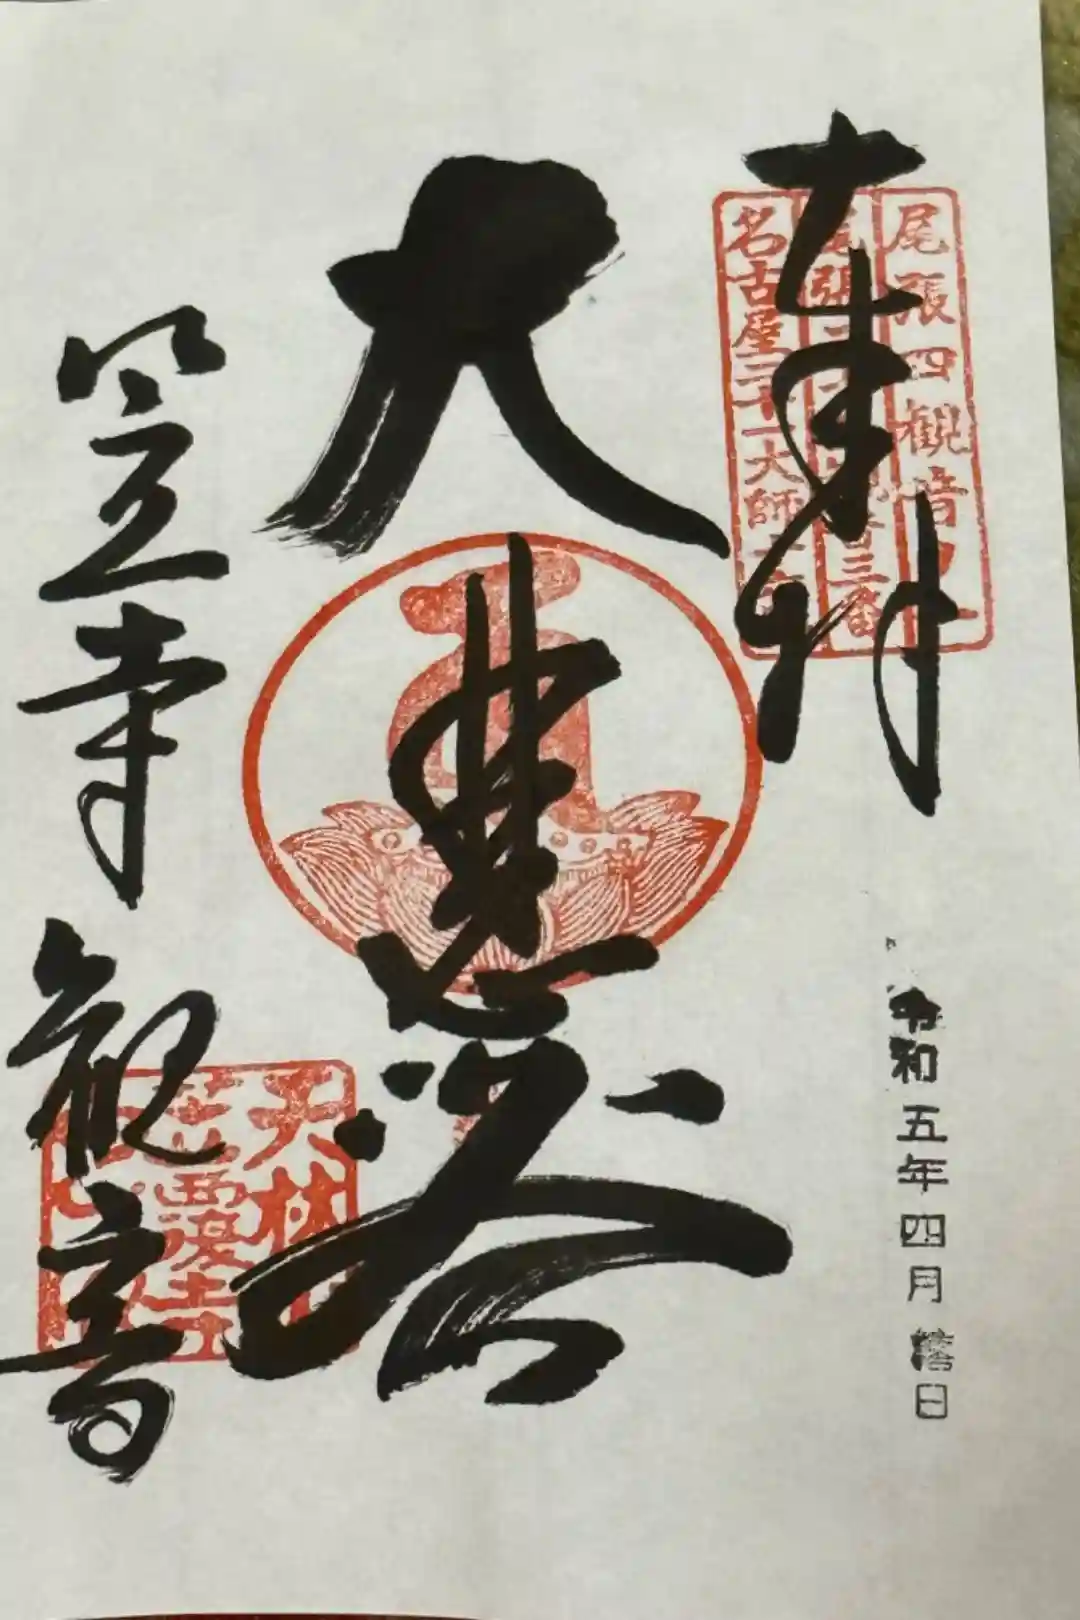 尾張四観音之一
奉拝
名古屋二十一大師
令和五年四月 日
大悲閣
天林山
笠覆寺
笠寺観音